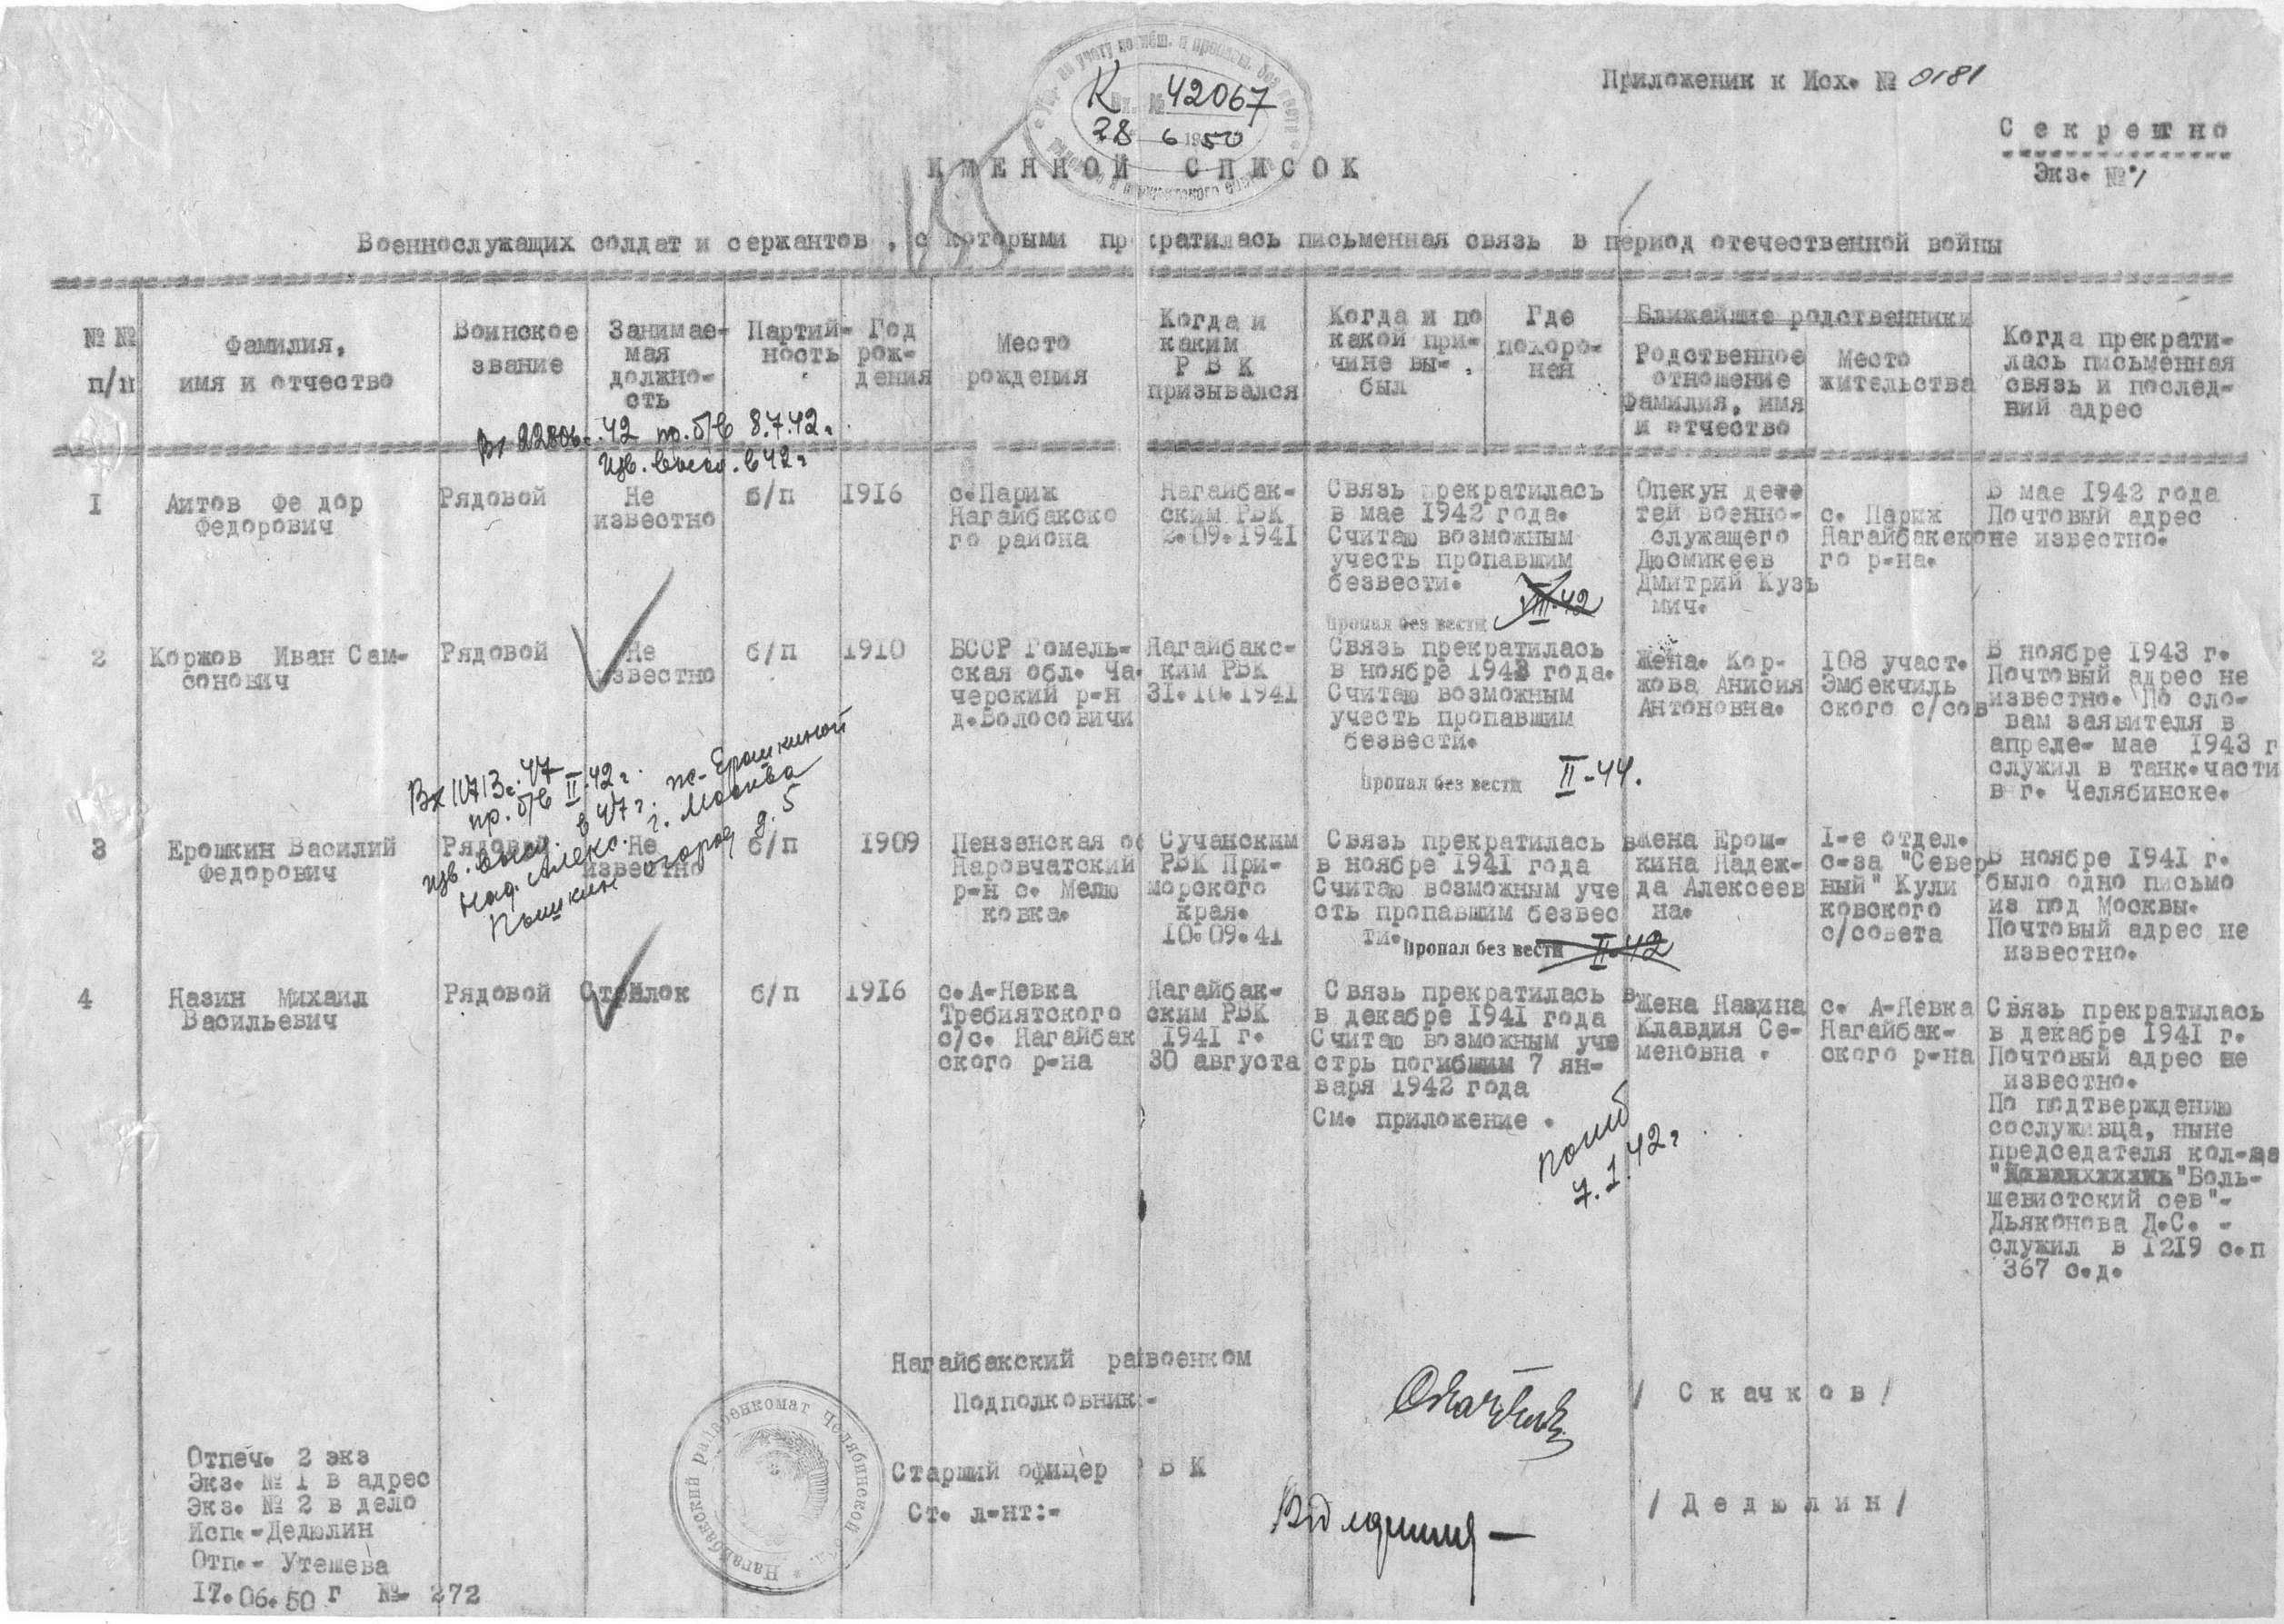 по учету погибш. и пропавш. без вести
К Вх. № 42067
28 6 1950
рядового и сержантского
Приложеник к Исх. № 0181
Секретно
Экз. № 1
ИМЕННОЙ СПИСОК
Военнослужащих солдат и сержантов, с которыми прекратилась письменная связь в период отечественной войны
№ № п/п
Фамилия,
имя и отчество
Воинское
звание
Занимае-
мая
должно-
сть
Партий-
ность
Год
рож-
дения
Место
рождения
Когда и
каким
Р В К
призывался
Когда и по
какой при-
чине вы-
был
Где
похоро-
нен
Ближайшие родственники
Родственное
отношение
фамилия, имя
и отчество
Место
жительства
Когда прекрати-
лась письменная
связь и послед-
ний адрес
Вх 22806с.42 пр. б/в 8.7.42г.
Изв. высл. в 42г
1
Аитов Федор
Федорович
Рядовой
Не
известно
б/п
1916
с.Париж
Нагайбакско
го района
Нагайбак-
ским РВК
2.09.1941
Связь прекратилась
в мае 1942 года.
Считаю возможным
учесть пропавшим
безвести.
Пропал без вести VIII-42
Опекун дете
тей военно-
служащего
Дюсмикеев
Дмитрий Кузь
мич.
с. Париж
Нагайбакско
го р-на.
В мае 1942 года
Почтовый адрес
не известно.
2
Коржов Иван Сам-
сонович
Рядовой
Не
известно
б/п
1910
БССР Гомель-
ская обл. Ча-
черский р-н
д.Волосовичи
Нагайбакс-
ким РВК
31.10.1941
Связь прекратилась
в ноябре 1943 года.
Считаю возможным
учесть пропавшим
безвести.
Пропал без вести II-44.
Жена. Кор-
жова Анисия
Антоновна.
108 участ.
Эмбекчиль
ского с/сов
В ноябре 1943 г.
Почтовый адрес не
известно. По сло-
вам заявителя в
апреле- мае 1943 г
служил в танк.части
в г. Челябинске.
Вх 11713с.47
пр. б/в II.42г.
изв. высл. в 47г. ж- Ерошкиной
Над. Алекс. г. Москва
огород д. 5
3
Ерошкин Василий
Федорович
Рядовой
Не
известно
б/п
1909
Пензенская об
Наровчатский
р-н с. Мелю
ковка.
Сучанским
РВК При-
морского
края.
10.09.41
Связь прекратилась в
в ноябре 1941 года
Считаю возможным уче
сть пропавшим безвес
ти.
Пропал без вести II-42
Жена Ерош-
кина Надеж-
да Алексеев
на.
1-е отдел.
с-за "Север
ный" Кули
ковского
с/совета
В ноябре 1941 г.
было одно письмо
из под Москвы.
Почтовый адрес не
известно.
4
Назин Михаил
Васильевич
Рядовой
Стрелок
б/п
1916
с.А-Невка
Требиятского
с/с. Нагайбак
ского р-на
Нагайбак-
ским РВК
1941 г.
30 августа
Связь прекратилась в
в декабре 1941 года
Считаю возможным уче
стрь погибшим 7 ян-
варя 1942 года
См. приложение .
погиб
7.1.42г
Жена Назина
Клавдия Се-
меновна .
с. А-Невка
Нагайбак-
ского р-на
Связь прекратилась
в декабре 1941 г.
Почтовый адрес не
известно.
По подтверждению
сослуживца, ныне
председателя кол-за
"Боль-
шевистский сев"-
Дьяконова Д.С. -
служил в 1219 с.п
367 с.д.
Нагайбакский райвоенком
Подполковник:-
/ Скачков /
Старший офицер РВК
Ст. л-нт:-
/ Дедюлин /
Нагайбакский райвоенкомат Челябинской обл.
Отпеч. 2 экз
Экз. № 1 в адрес
Экз. № 2 в дело
Исп.-Дедюлин
Отп.- Утешева
17.06.50 г № 272